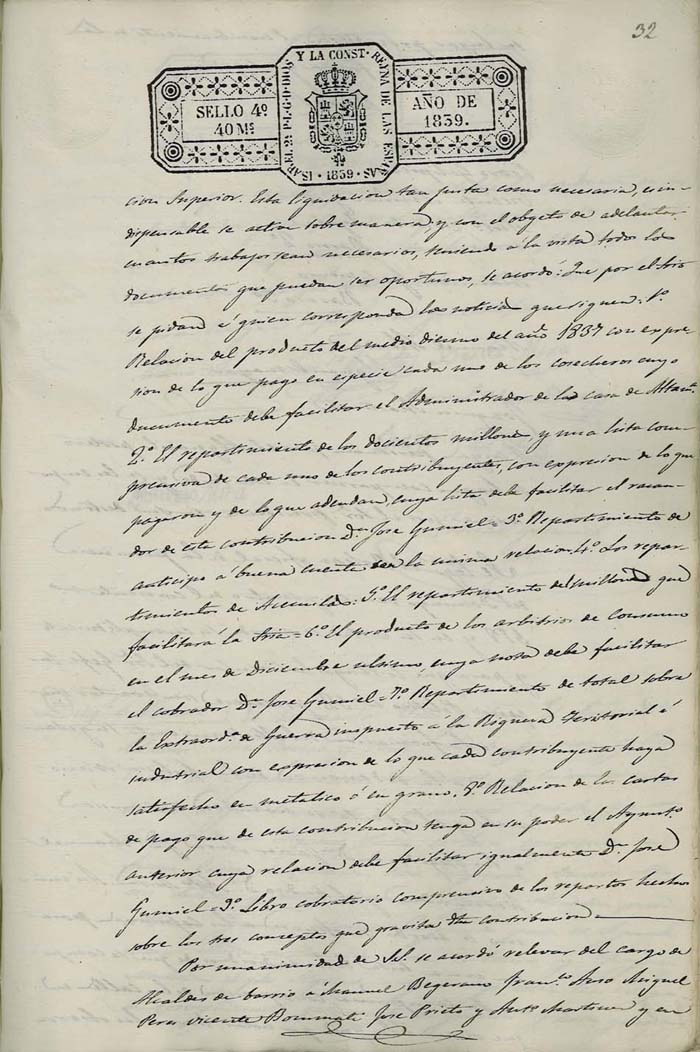 32
SELLO 4º
40 Ms
ISABEL 2ª P. L. G. D. DIOS Y LA CONST. REINA DE LAS ESPAÑAS
· 1839 ·
AÑO DE
1839.
cion Superior. Esta liquidacion tan justa como necesaria, es in-
dispensable se active sobre manera y con el obgeto de adelantar
cuantos trabajos sean necesarios, teniendo á la vista todos los
documentos que puedan ser oportunos, se acordó: Que por el Srio
se pidan á quien corresponda las noticias que siguen: 1º
Relacion del producto del medio diezmo del año 1837 con expre-
sion de lo que pago en especie cada uno de los cosecheros cuyo
documento debe facilitar el Administrador de la casa de Altam.ª
2º El repartimiento de los docientos millones y una lista com-
prensiva de cada uno de los contribuyentes, con expresion de lo que
pagaron y de lo que adeudan, cuya lista debe facilitar el recau-
dor de esta contribucion Dn Jose Gumiel = 3º Repartimiento de
anticipo á buena cuenta la misma relacion. 4º Los repar-
timientos de = 5º El repartimiento del millon que
facilitará la Sria = 6º El producto de los arbitrios de consumo
en el mes de Diciembre ultimo, cuya nota debe facilitar
el cobrador Dn Jose Gumiel = 7º Repartimiento de total sobre
la Extraordª de Guerra impuesto á la Riqueza Territorial é
industrial con expresion de lo que cada contribuyente haya
satisfecho en metalico ó en grano. 8º Relacion de las cartas
de pago que de esta contribucion tenga en su poder el Ayuntº
anterior cuya relacion debe facilitar igualmente Dn Jose
Gumiel = 9º Libro cobratorio comprensivo de los repartos hechos
sobre los tres conceptos que gravita dha contribucion
Por unanimidad de SS. se acordó relevar del cargo de
Alcaldes de barrio á Manuel Begerano Franco Miguel
Peras Vicente Jose Prieto y Antº Martinez y en